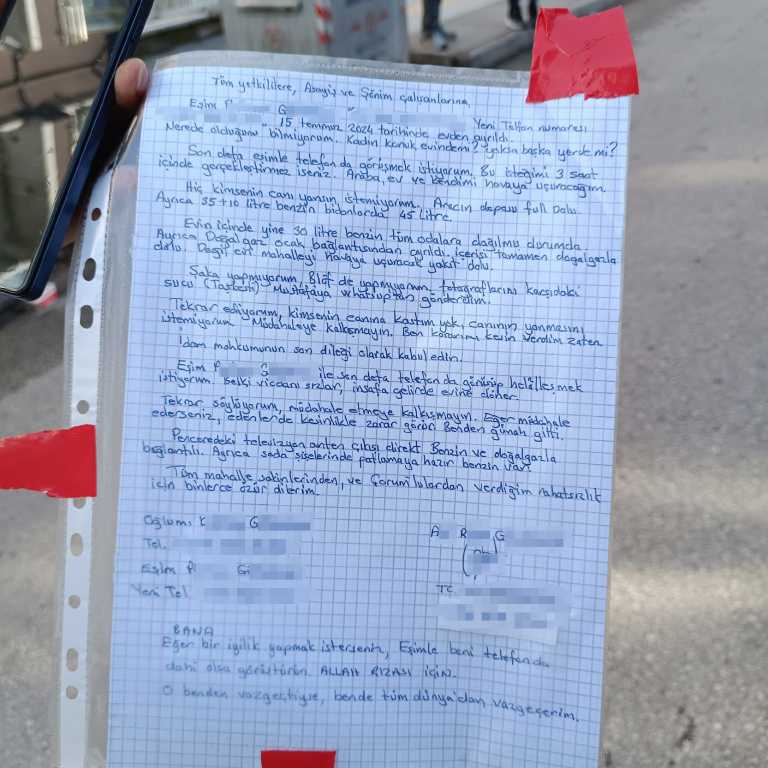 Tüm yetkililere, Asayiş ve Şönim çalışanlarına,
Eşim P G Yeni Telfon numarası
15 temmuz 2024 tarihinde evden ayrıldı.
Nerede olduğunu bilmiyorum. Kadın konuk evindemi? yoksa başka yerde mi?
Son defa eşimle telefonda görüşmek istiyorum. Bu isteğimi 3 saat
içinde gerçekleştirmez iseniz. Araba, ev ve kendimi havaya uçuracağım.
Hiç kimsenin canı yansın istemiyorum. Aracın deposu full Dolu.
Ayrıca 35+10 litre benzin bidonlarda 45 Litre.
Evin içinde yine 30 litre benzin tüm odalara dağılmış durumda
Ayrıca Doğal gaz ocak bağlantısından ayrıldı. İçerisi tamamen doğalgazla
dolu. Değil evi mahalleyi havaya uçuracak yakıt dolu.
Şaka yapmıyorum, Blöf de yapmıyorum, fotoğraflarını karşıdaki
sucu Mustafaya whatsuptan gönderdim.
Tekrar ediyorum, kimsenin canına kastım yok, canının yanmasını
istemiyorum Müdahaleye kalkışmayın. Ben kararımı kesin verdim zaten
İdam mahkumunun son dileği olarak kabul edin.
Eşim P G ile son defa telefonda görüşüp helâlleşmek
istiyorum. Belki vicdanı sızlar, insafa gelirde evine döner.
Tekrar söylüyorum, müdahale etmeye kalkışmayın. Eğer müdahale
ederseniz, edenlerde kesinlikle zarar görür Benden günah gitti.
Penceredeki televizyon anten çıkışı direkt Benzin ve doğalgazla
bağlantılı. Ayrıca soda şişelerinde patlamaya hazır benzin var.
Tüm mahalle sakinlerinden, ve Çorum'lulardan verdiğim rahatsızlık
için binlerce özür dilerim.
Oğlum: K G
Tel.
Eşim P Gi
Yeni Tel
A R G
TC
BANA
Eğer bir iyilik yapmak isterseniz, Eşimle beni telefonda
dahi olsa görüştürün. ALLAH RIZASI İÇİN.
O benden vazgeçtiyse, bende tüm dünya'dan vazgeçerim.